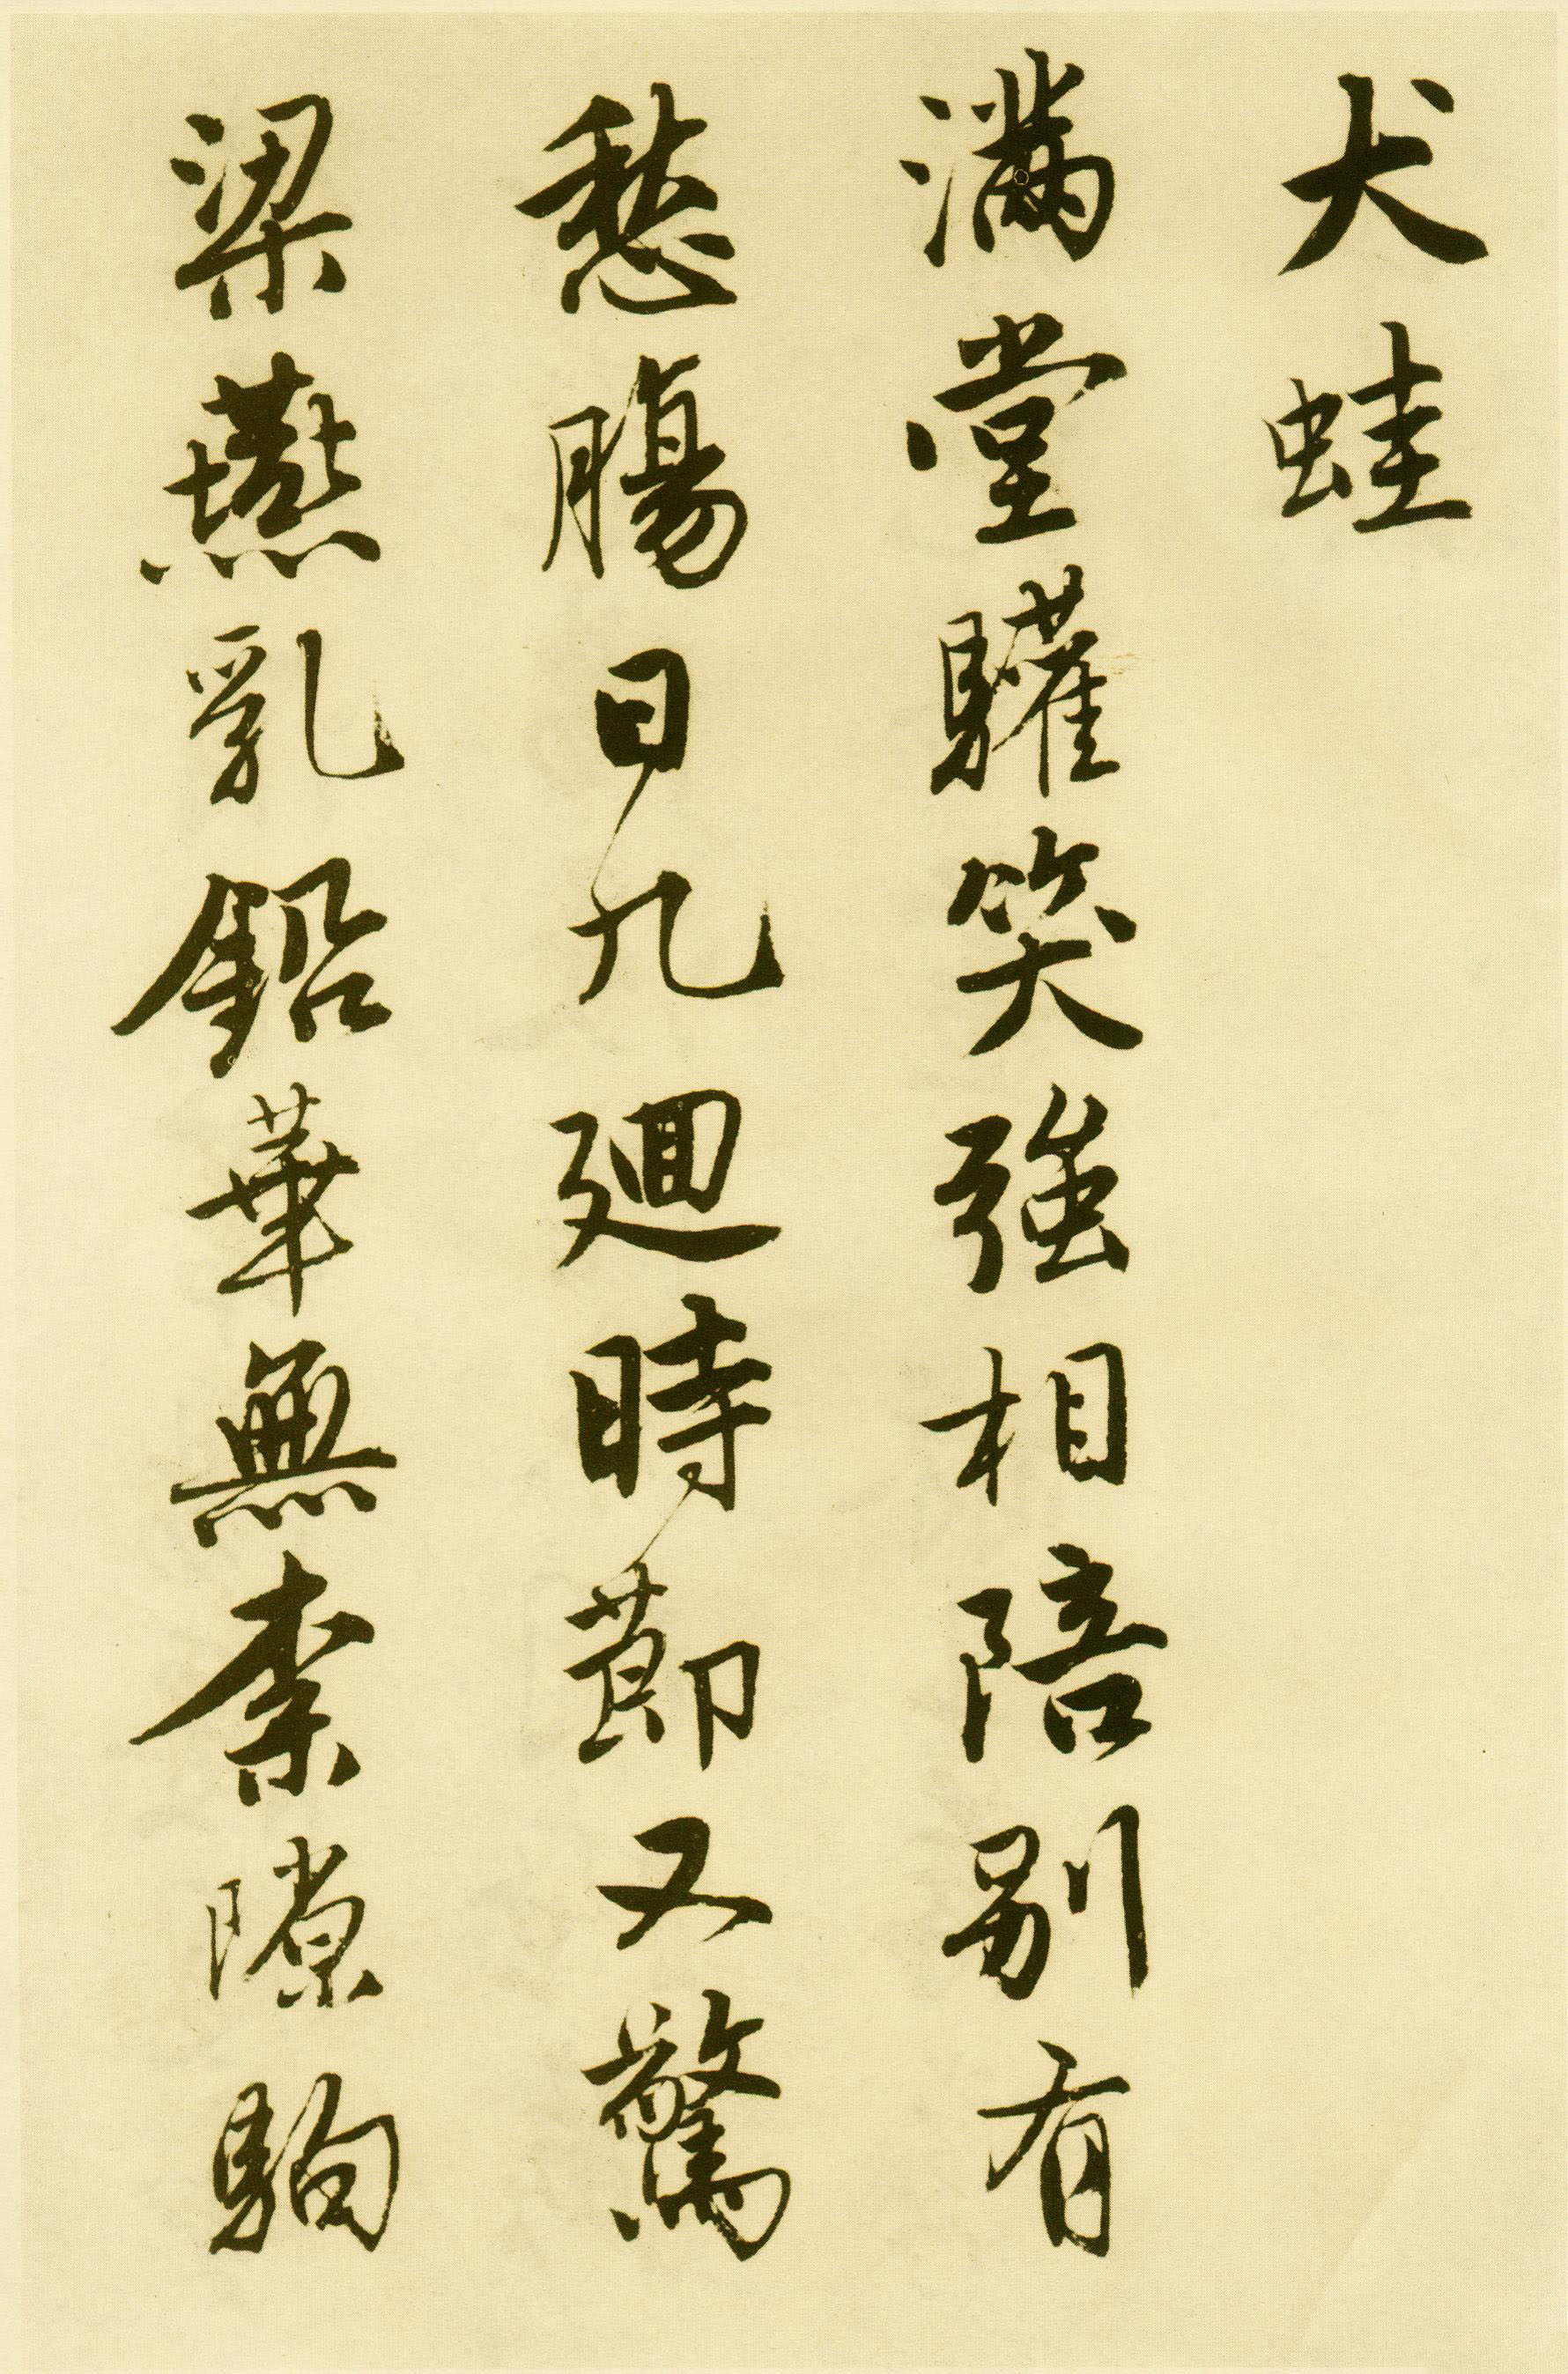 犬蛙
滿堂驩笑強相陪别有
愁腸日九迴時節又驚
梁燕乳鉛華無柰隙駒